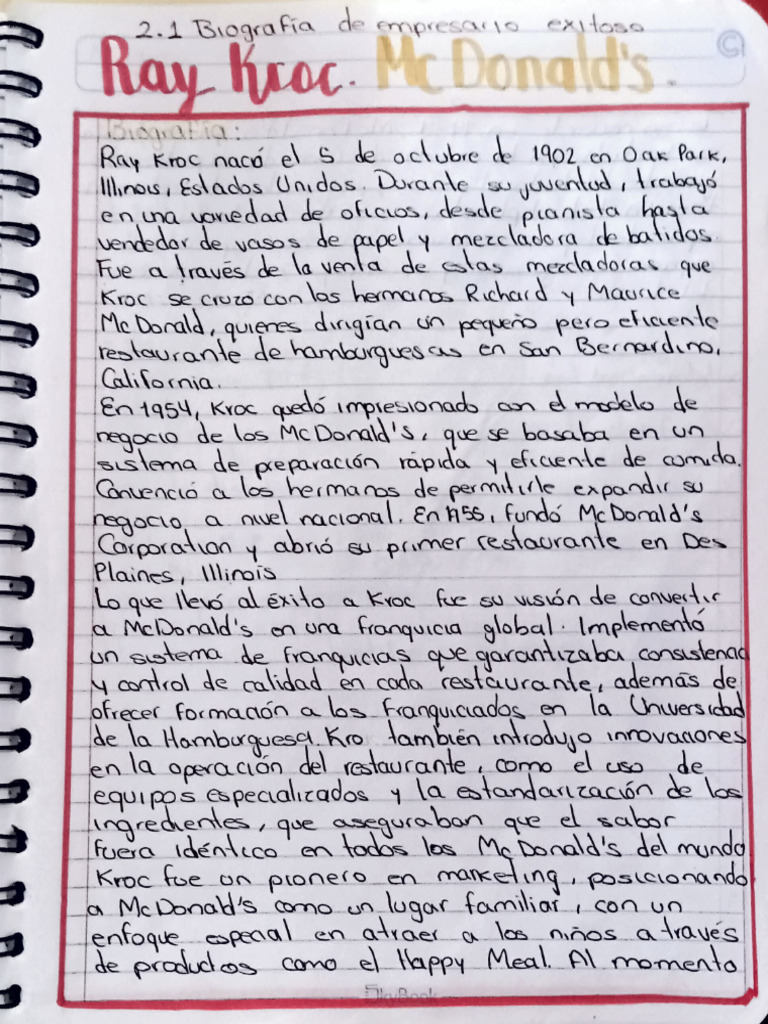 2.1 Biografía de empresario exitoso
©
Ray Kroc. McDonald's.
Biografía:
Ray Kroc nació el 5 de octubre de 1902 en Oak Park,
Illinois, Estados Unidos. Durante su juventud, trabajó
en una variedad de oficios, desde pianista hasta
vendedor de vasos de papel y mezcladora de batidos.
Fue a través de la venta de estas mezcladoras que
Kroc se cruzó con los hermanos Richard y Maurice
McDonald, quienes dirigían un pequeño pero eficiente
restaurante de hamburguesas en San Bernardino,
California.
En 1954, Kroc quedó impresionado con el modelo de
negocio de los McDonald's, que se basaba en un
sistema de preparación rápida y eficiente de comida.
Convenció a los hermanos de permitirle expandir su
negocio a nivel nacional. En 1955, fundó McDonald's
Corporation y abrió su primer restaurante en Des
Plaines, Illinois
Lo que llevó al éxito a Kroc fue su visión de convertir
a McDonald's en una franquicia global. Implementó
un sistema de franquicias que garantizaba consistenc
y control de calidad en cada restaurante, además de
ofrecer formación a los franquiciados en la Universidad
de la Hamburguesa. Kro también introdujo innovaciones
en la operación del restaurante, como el uso de
equipos especializados y la estandarización de los
ingredientes, que aseguraban que el sabor
fuera idéntico en todos los McDonald's del mundo
Kroc fue un pionero en marketing, posicionando
a McDonald's como un lugar familiar, con un
enfoque especial en atraer a los niños a través
de productos como el Happy Meal. Al momento
SkyBook